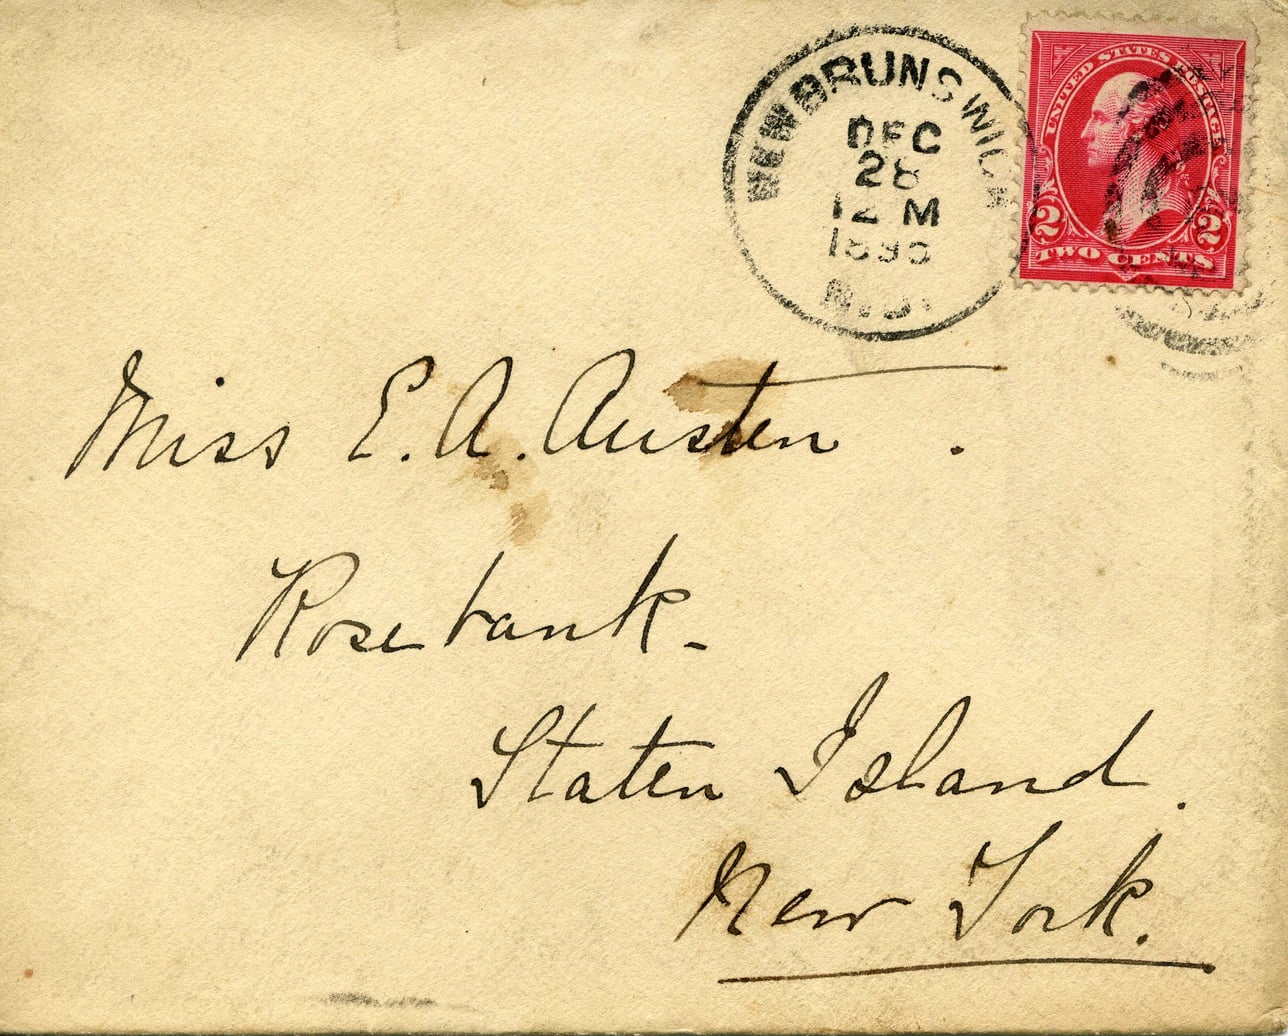 NEW BRUNSWICK
DEC
28
12 M
1895
N.J.
UNITED STATES POSTAGE
2 2
TWO CENTS
Miss E. A. Austen.
Rosebank.
Staten Island.
New York.